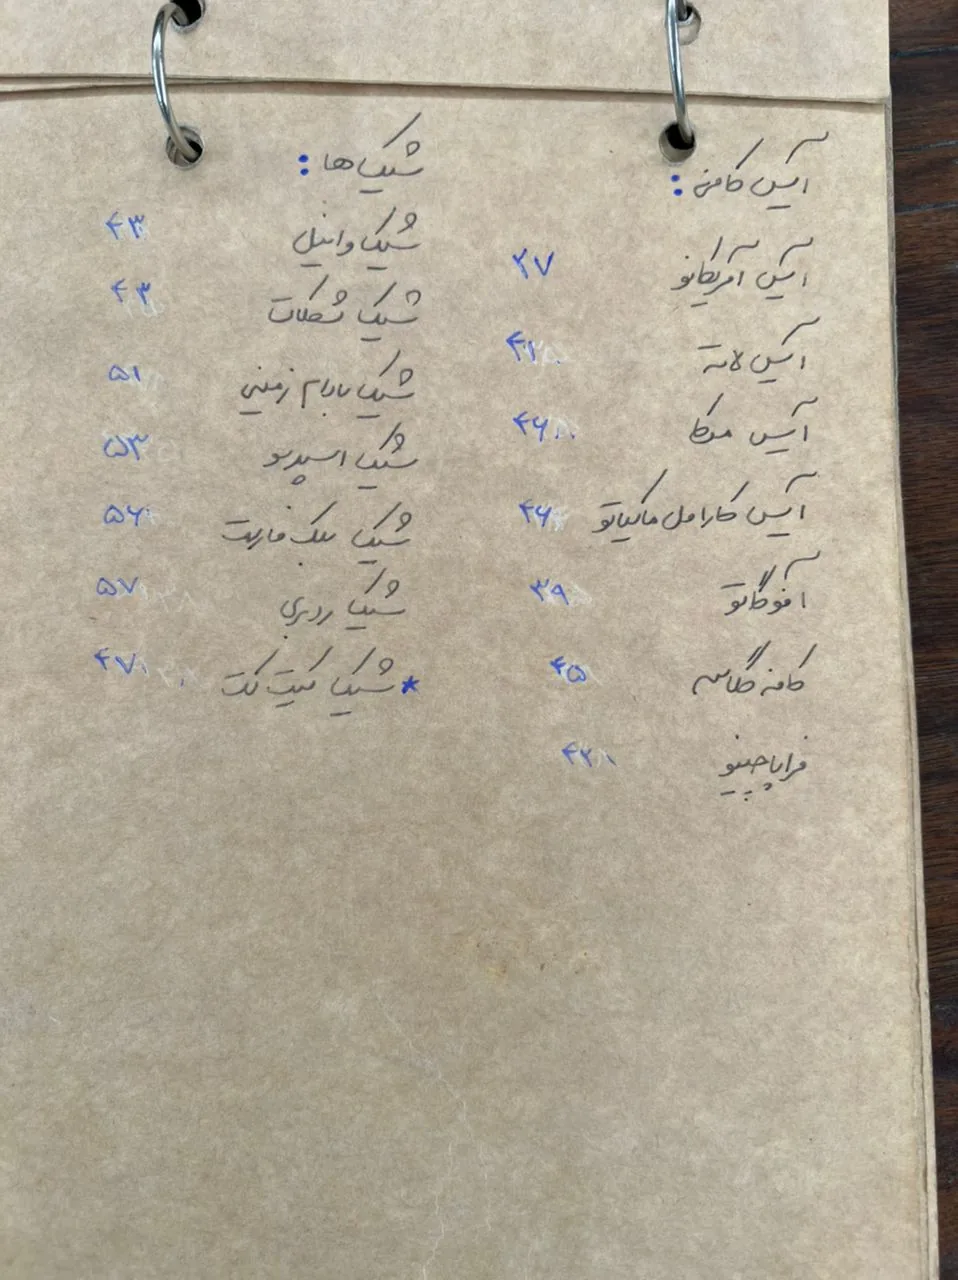 آیس کافه :
آیس آمریکانو ۲۷
آیس لاته
آیس موکا ۴۶
آیس کارامل ماکیاتو ۴۶
آفوگاتو ۳۹
کافه گلاسه ۴۵
فراپاچینو ۴۲
شیک ها :
شیک وانیل ۴۳
شیک شکلات ۴۳
شیک بادام زمینی ۵۱
شیک اسپرسو ۵۳
شیک ۵۶
شیک ردبری ۵۷
* شیک کیت کت ۴۷